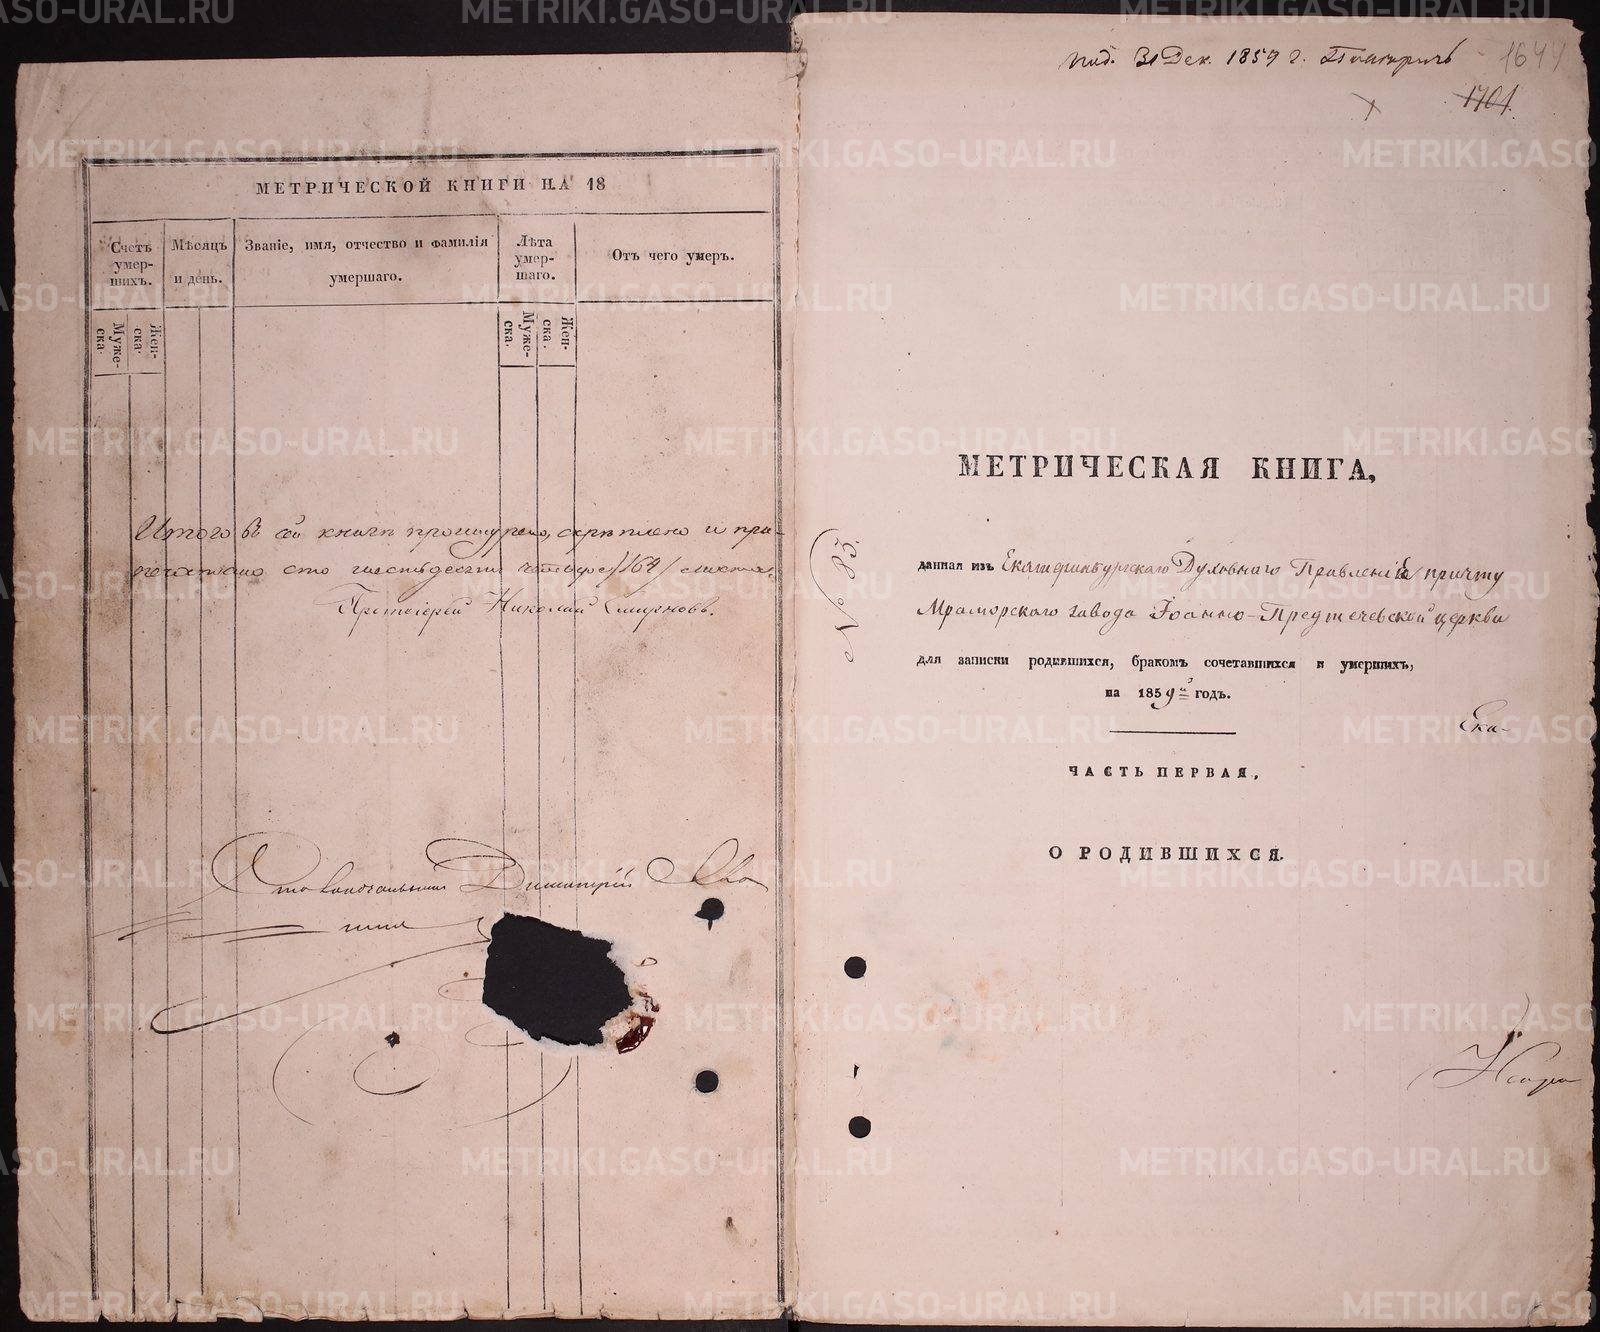 МЕТРИЧЕСКОЙ КНИГИ НА 18
Счетъ умер-шихъ.
Мѣсяцъ и день.
Званіе, имя, отчество и фамилія умершаго.
Лѣта умер-шаго.
Отъ чего умеръ.
Муже-ска.
Жен-ска.
Муже-ска.
Жен-ска.
Итого въ сей книгѣ прошнуровано, скрѣплено и при-
печатано сто шестьдесятъ четыре /164/ листа.
Протоіерей Николай Смирновъ.
Столоначальникъ Димитрій
31 Дек. 1859 г.
1644
1701.
МЕТРИЧЕСКАЯ КНИГА,
№ 85.
данная изъ Екатеринбургскаго Духовнаго Правленія причту
Мраморскаго завода Іоанно-Предтечевской церкви
для записки родившихся, бракомъ сочетавшихся и умершихъ,
на 1859й годъ.
Ека-
ЧАСТЬ ПЕРВАЯ,
О РОДИВШИХСЯ.
METRIKI.GASO-URAL.RU